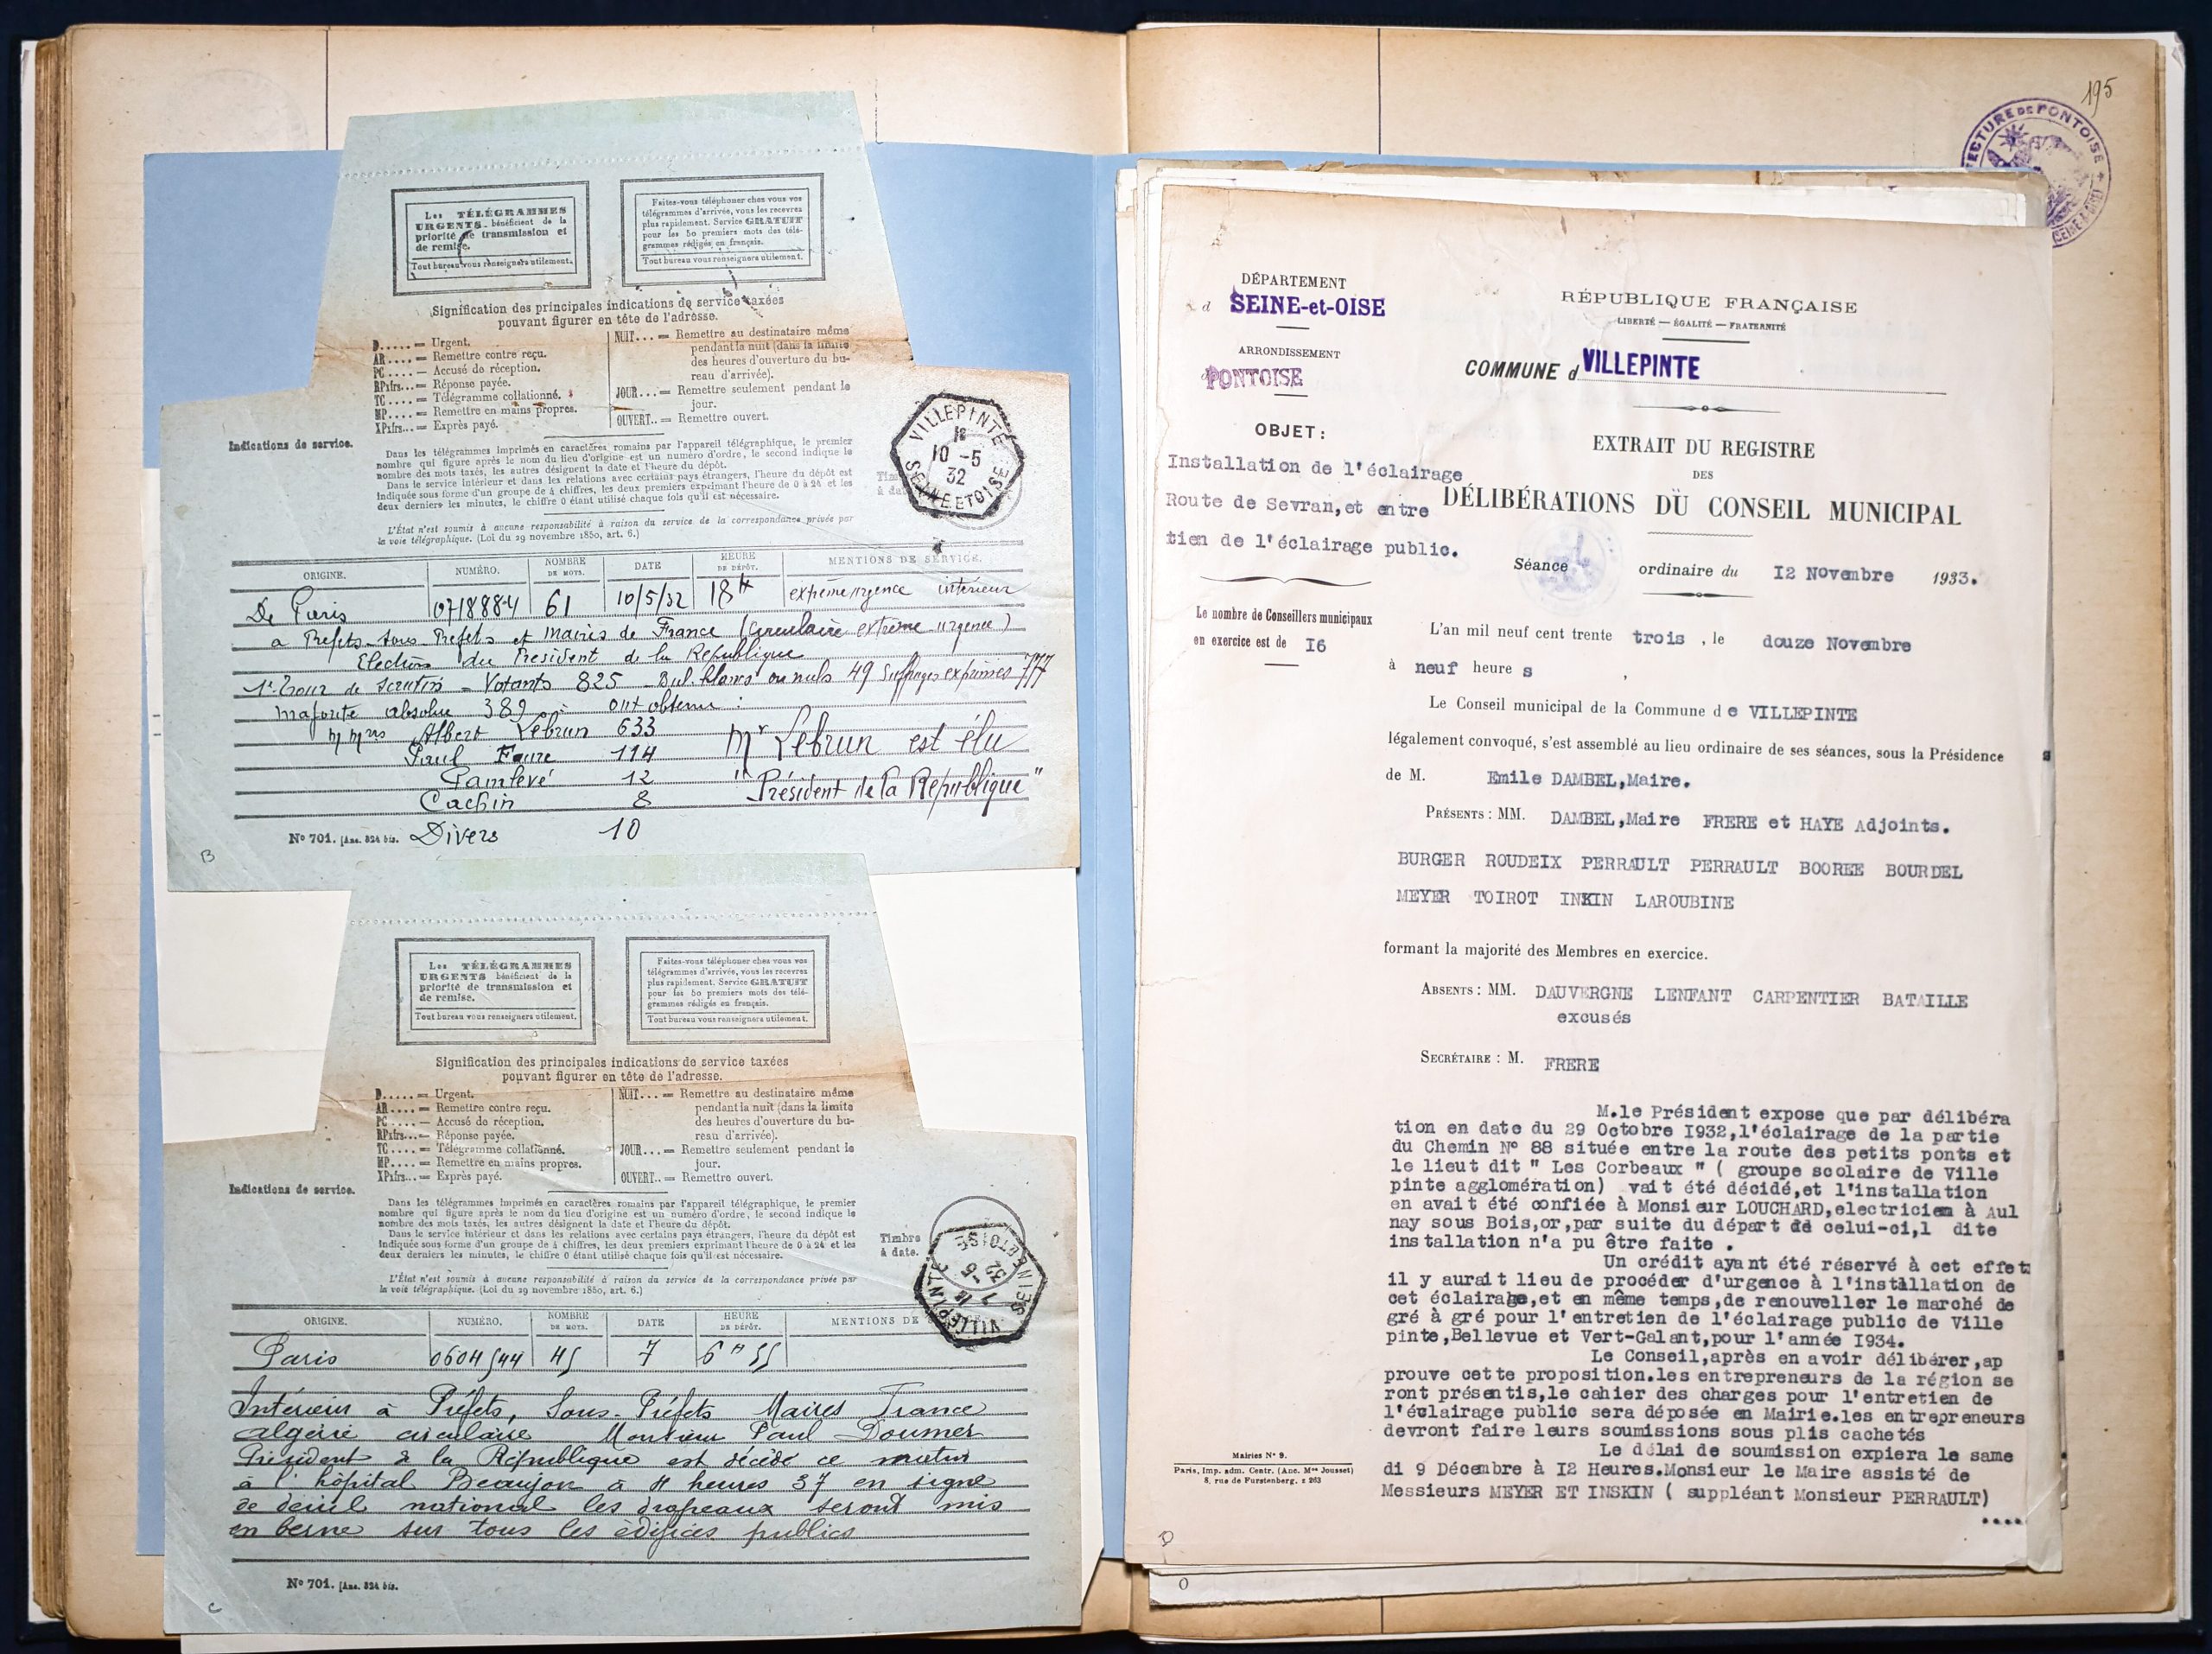 Les TÉLÉGRAMMES
URGENTS bénéficient de la
priorité de transmission et
de remise.
Tout bureau vous renseignera utilement.
Faites-vous téléphoner chez vous vos
télégrammes d'arrivée, vous les recevrez
plus rapidement. Service GRATUIT
pour les 50 premiers mots des télé-
grammes rédigés en français.
Tout bureau vous renseignera utilement.
Signification des principales indications de service taxées
pouvant figurer en tête de l'adresse.
D..... = Urgent.
AR.... = Remettre contre reçu.
PC.... = Accusé de réception.
RPxfrs... = Réponse payée.
TC.... = Télégramme collationné.
MP.... = Remettre en mains propres.
XPxfrs... = Exprès payé.
NUIT... = Remettre au destinataire même
pendant la nuit (dans la limite
des heures d'ouverture du bu-
reau d'arrivée).
JOUR... = Remettre seulement pendant le
jour.
OUVERT.. = Remettre ouvert.
Indications de service.
Dans les télégrammes imprimés en caractères romains par l'appareil télégraphique, le premier
nombre qui figure après le nom du lieu d'origine est un numéro d'ordre, le second indique le
nombre des mots taxés, les autres désignent la date et l'heure du dépôt.
Dans le service intérieur et dans les relations avec certains pays étrangers, l'heure du dépôt est
indiquée sous forme d'un groupe de 4 chiffres, les deux premiers exprimant l'heure de 0 à 24 et les
deux derniers les minutes, le chiffre 0 étant utilisé chaque fois qu'il est nécessaire.
L'État n'est soumis à aucune responsabilité à raison du service de la correspondance privée par
la voie télégraphique. (Loi du 29 novembre 1850, art. 6.)
VILLEPINTE
18
10 -5
32
SEINE ET OISE
ORIGINE. NUMÉRO. NOMBRE DE MOTS. DATE HEURE DE DÉPÔT. MENTIONS DE SERVICE.
De Paris 0718884 61 10/5/32 18H extrême urgence intérieur
a Prefets-Sous Prefets et Maires de France (Circulaire extrême urgence)
Election du President de la Republique
1er Tour de Scrutin - Votants 825 Bul. blancs ou nuls 49 Suffrages exprimés 777
majorité absolue 389 ont obtenu :
M Mrs Albert Lebrun 633
Paul Faure 114
Painlevé 12
Cachin 8
Divers 10
Mr Lebrun est élu
"Président de la République"
No 701. [Anc. 324 bis.
B
Les TÉLÉGRAMMES
URGENTS bénéficient de la
priorité de transmission et
de remise.
Tout bureau vous renseignera utilement.
Faites-vous téléphoner chez vous vos
télégrammes d'arrivée, vous les recevrez
plus rapidement. Service GRATUIT
pour les 50 premiers mots des télé-
grammes rédigés en français.
Tout bureau vous renseignera utilement.
Signification des principales indications de service taxées
pouvant figurer en tête de l'adresse.
D..... = Urgent.
AR.... = Remettre contre reçu.
PC.... = Accusé de réception.
RPxfrs... = Réponse payée.
TC.... = Télégramme collationné.
MP.... = Remettre en mains propres.
XPxfrs... = Exprès payé.
NUIT... = Remettre au destinataire même
pendant la nuit (dans la limite
des heures d'ouverture du bu-
reau d'arrivée).
JOUR... = Remettre seulement pendant le
jour.
OUVERT.. = Remettre ouvert.
Indications de service.
Dans les télégrammes imprimés en caractères romains par l'appareil télégraphique, le premier
nombre qui figure après le nom du lieu d'origine est un numéro d'ordre, le second indique le
nombre des mots taxés, les autres désignent la date et l'heure du dépôt.
Dans le service intérieur et dans les relations avec certains pays étrangers, l'heure du dépôt est
indiquée sous forme d'un groupe de 4 chiffres, les deux premiers exprimant l'heure de 0 à 24 et les
deux derniers les minutes, le chiffre 0 étant utilisé chaque fois qu'il est nécessaire.
L'État n'est soumis à aucune responsabilité à raison du service de la correspondance privée par
la voie télégraphique. (Loi du 29 novembre 1850, art. 6.)
Timbre
à date.
VILLEPINTE
7 -5
32
SEINE ET OISE
ORIGINE. NUMÉRO. NOMBRE DE MOTS. DATE HEURE DE DÉPÔT. MENTIONS DE
Paris 0604544 45 7 6H55
Intérieur à Préfets, Sous-Préfets Maires France
Algérie circulaire Monsieur Paul Doumer
Président de la République est décédé ce matin
à l'hôpital Beaujon à 4 heures 37 en signe
de deuil national les drapeaux seront mis
en berne sur tous les édifices publics
No 701. [Anc. 324 bis.
C
195
PRÉFECTURE DE PONTOISE
SEINE & OISE
DÉPARTEMENT
d SEINE-et-OISE
ARRONDISSEMENT
d PONTOISE
OBJET :
Installation de l'éclairage
Route de Sevran,et entre
tien de l'éclairage public.
Le nombre de Conseillers municipaux
en exercice est de I6
RÉPUBLIQUE FRANÇAISE
LIBERTÉ — ÉGALITÉ — FRATERNITÉ
COMMUNE d VILLEPINTE
EXTRAIT DU REGISTRE
DES
DÉLIBÉRATIONS DU CONSEIL MUNICIPAL
Séance ordinaire du I2 Novembre 1933.
L'an mil neuf cent trente trois , le douze Novembre
à neuf heure s
Le Conseil municipal de la Commune d e VILLEPINTE
légalement convoqué, s'est assemblé au lieu ordinaire de ses séances, sous la Présidence
de M. Emile DAMBEL,Maire.
PRÉSENTS : MM. DAMBEL,Maire FRERE et HAYE Adjoints.
BURGER ROUDEIX PERRAULT PERRAULT BOOREE BOURDEL
MEYER TOIROT INKIN LAROUBINE
formant la majorité des Membres en exercice.
ABSENTS : MM. DAUVERGNE LENFANT CARPENTIER BATAILLE
excusés
SECRÉTAIRE : M. FRERE
M.le Président expose que par délibéra
tion en date du 29 Octobre I932,l'éclairage de la partie
du Chemin N° 88 située entre la route des petits ponts et
le lieut dit " Les Corbeaux " ( groupe scolaire de Ville
pinte agglomération) vait été décidé,et l'installation
en avait été confiée à Monsieur LOUCHARD,electricien à Aul
nay sous Bois,or,par suite du départ de celui-ci,l dite
installation n'a pu être faite .
Un crédit ayant été réservé à cet effet
il y aurait lieu de procéder d'urgence à l'installation de
cet éclairage,et en même temps,de renouveller le marché de
gré à gré pour l'entretien de l'éclairage public de Ville
pinte,Bellevue et Vert-Galant,pour l'année I934.
Le Conseil,après en avoir délibérer,ap
prouve cette proposition.les entrepreneurs de la région se
ront présentis,le cahier des charges pour l'entretien de
l'éclairage public sera déposée en Mairie.les entrepreneurs
devront faire leurs soumissions sous plis cachetés
Le délai de soumission expiera le same
di 9 Décembre à I2 Heures.Monsieur le Maire assisté de
Messieurs MEYER ET INSKIN ( suppléant Monsieur PERRAULT)
....
Mairies No 9.
Paris, Imp. adm. Centr. (Anc. Mon Jousset)
8, rue de Furstenberg. z 263
D